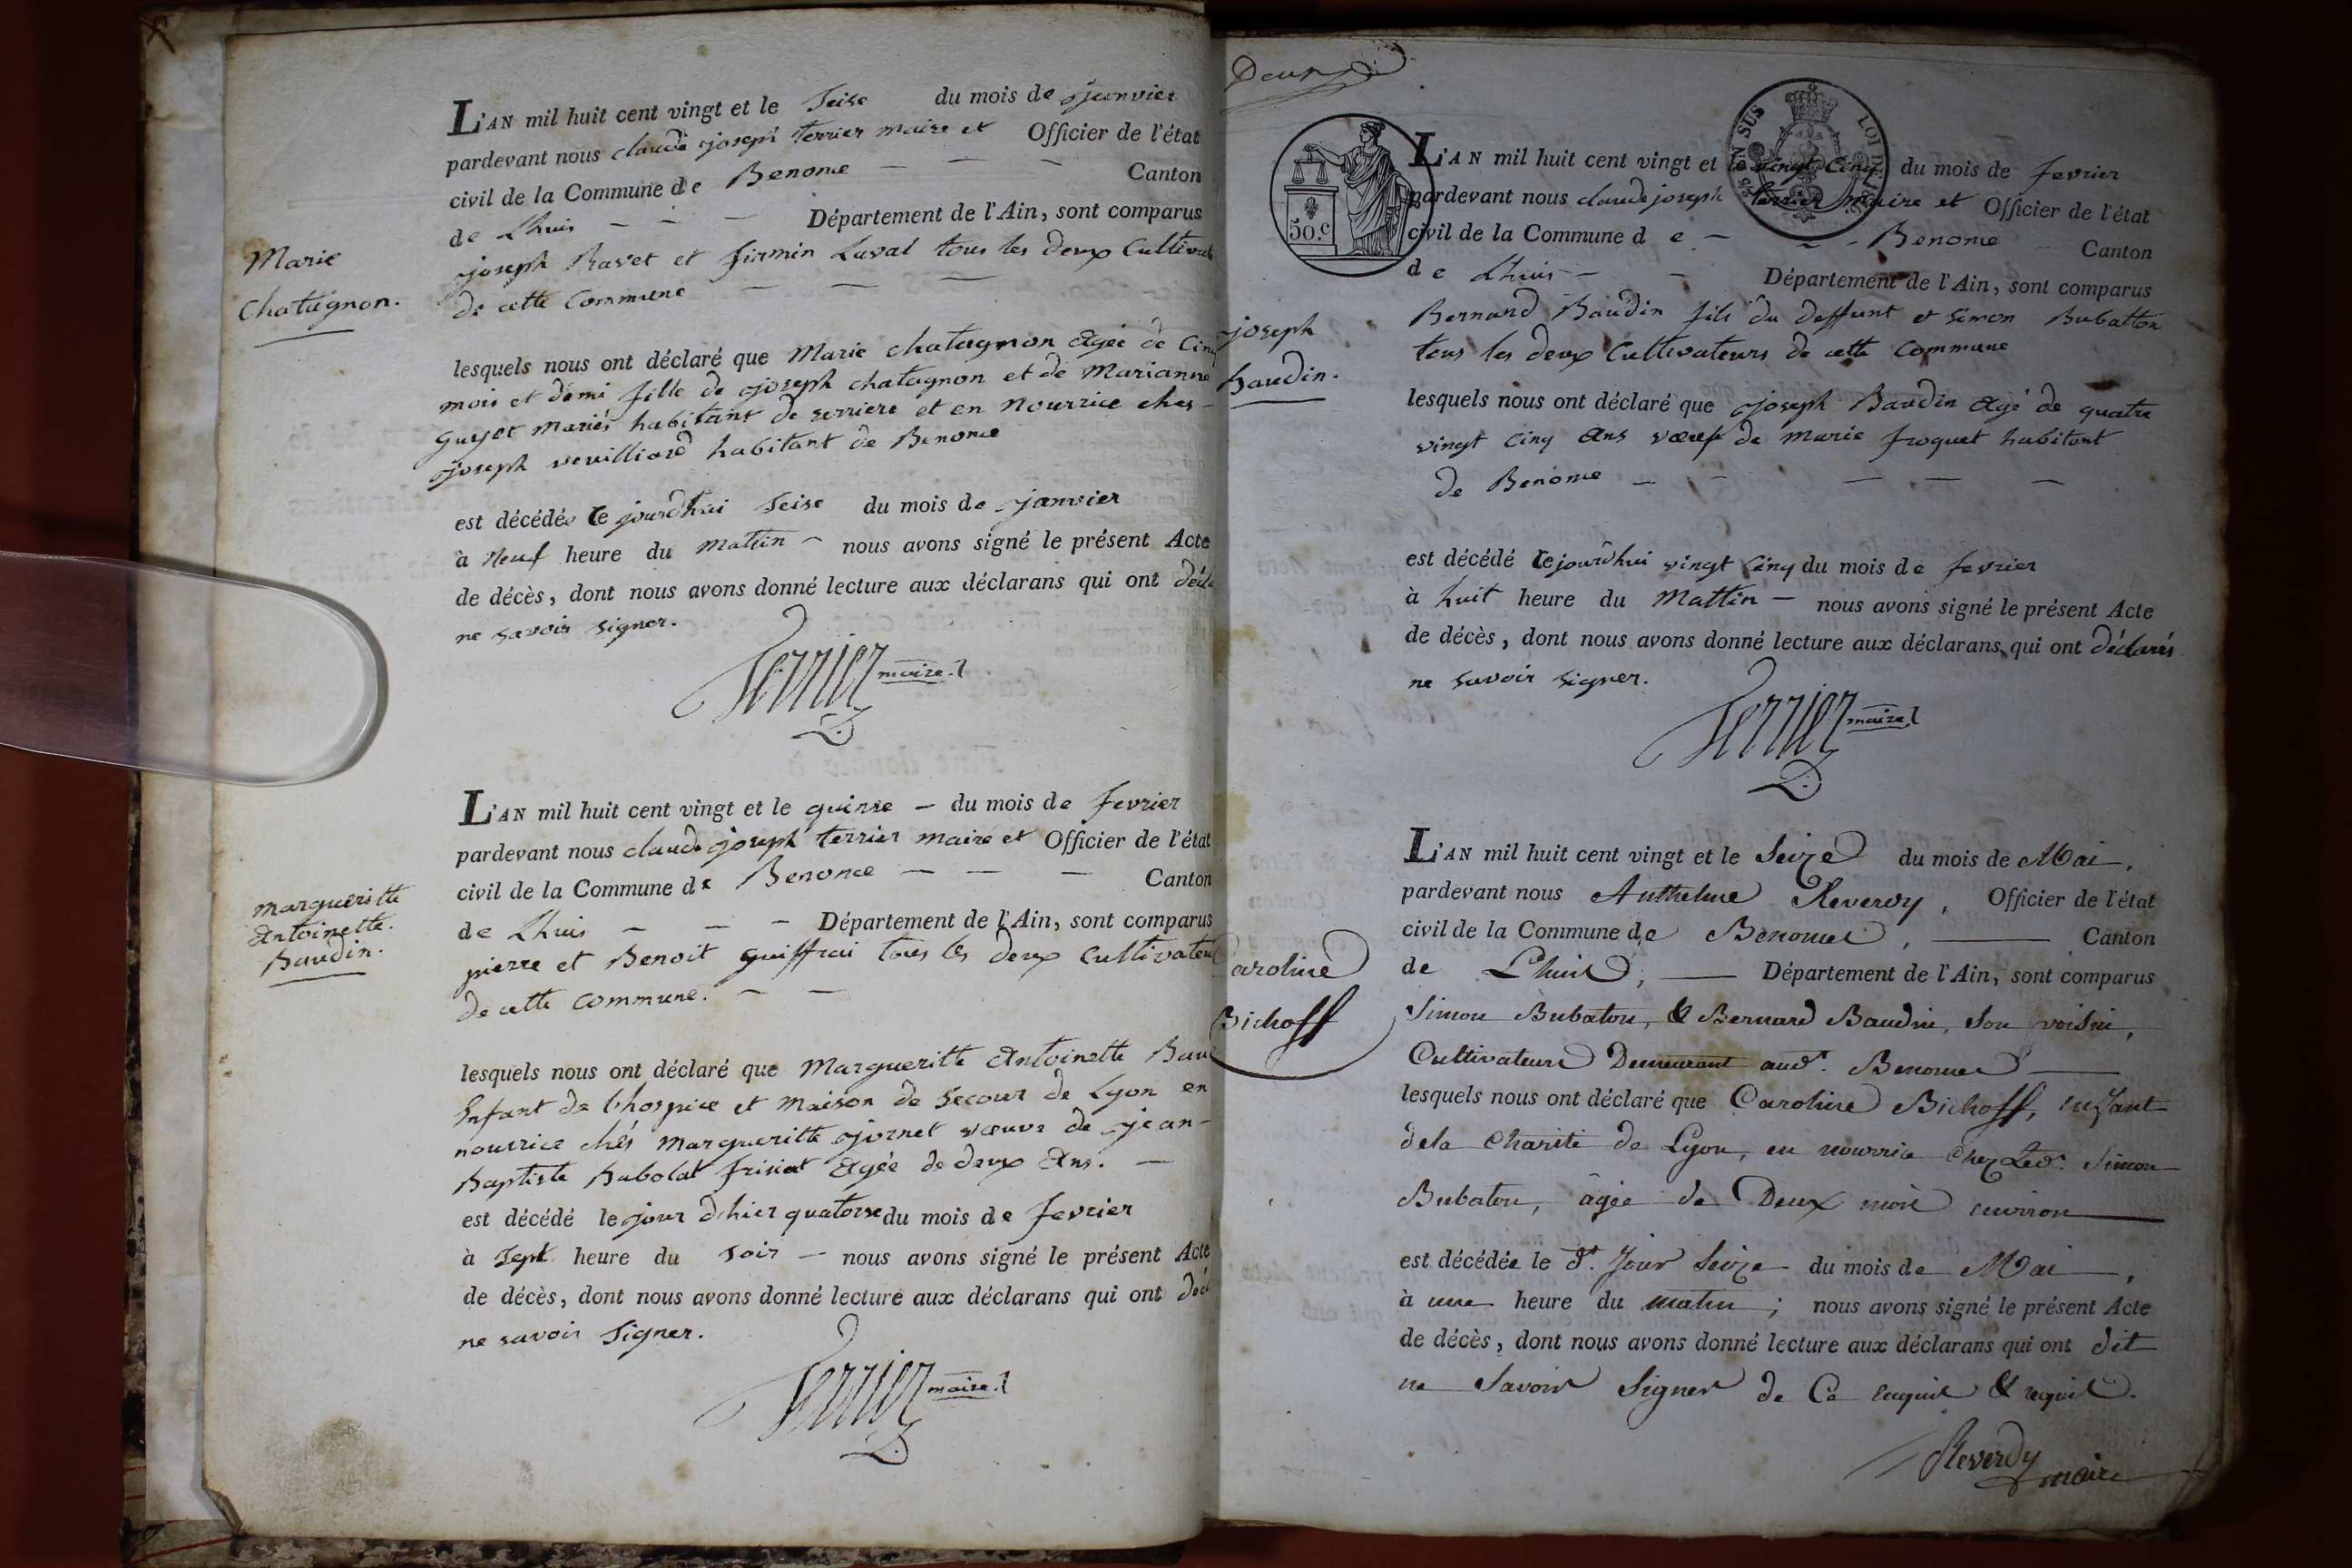 Marie
Chatagnon.
L'AN mil huit cent vingt et le seise du mois de janvier
pardevant nous claude joseph terrier maire et Officier de l'état
civil de la Commune de Benonce — — — Canton
de Lhuis — — — Département de l'Ain, sont comparus
joseph Ravet et firmin Laval tous les deux Cultivat
de cette Commune — — —
lesquels nous ont déclaré que Marie chatagnon agée de Cinq
mois et demi fille de joseph chatagnon et de Marianne
guyet mariés habitant de serriere et en nourrice ches
joseph veuilliard habitant de Benonce
est décédée le jourdhui seise du mois de janvier
à neuf heure du mattin — nous avons signé le présent Acte
de décès, dont nous avons donné lecture aux déclarans qui ont décla
ne savoir signer.
Terrier maire
margueritte
antoinette.
Baudin.
L'AN mil huit cent vingt et le quinse — du mois de fevrier
pardevant nous claude joseph terrier maire et Officier de l'état
civil de la Commune de Benonce — — — Canton
de Lhuis — — — Département de l'Ain, sont comparus
pierre et Benoit guiffrai tous les deux Cultivateu
de cette commune. — —
lesquels nous ont déclaré que Margueritte Antoinette Bau
Enfant de l'hospice et maison de secour de Lyon en
nourrice chés margueritte jornet vœuve de jean-
Baptiste Babolat agée de deux ans. —
est décédé le jour dhier quatorse du mois de fevrier
à sept heure du soir — nous avons signé le présent Acte
de décès, dont nous avons donné lecture aux déclarans qui ont décl
ne savoir signer.
Terrier maire
Deux
50.c
EN SUS
LOI DE 18
joseph
baudin.
L'AN mil huit cent vingt et le vingt cinq du mois de fevrier
pardevant nous claude joseph terrier maire et Officier de l'état
civil de la Commune de — — Benonce Canton
de Lhuis — — Département de l'Ain, sont comparus
Bernard Baudin fils du deffunt et simon Bubatton
tous les deux Cultivateurs de cette commune
lesquels nous ont déclaré que joseph Baudin agé de quatre
vingt cinq ans vœuf de marie froquet habitant
de Benonce — — — — —
est décédé le jourdhui vingt cinq du mois de fevrier
à huit heure du Mattin — nous avons signé le présent Acte
de décès, dont nous avons donné lecture aux déclarans qui ont déclarés
ne savoir signer.
Terrier maire
Caroline
Bichoff
L'AN mil huit cent vingt et le Seize du mois de Mai,
pardevant nous Anthelme Reverdy, Officier de l'état
civil de la Commune de Benonce, — Canton
de Lhuis, — Département de l'Ain, sont comparus
Simon Bubaton, & Bernard Baudin, son voisin,
Cultivateurs Demeurant aud.t Benonce —
lesquels nous ont déclaré que Caroline Bichoff, enfant
dela charité de Lyon, en nourrice chez Led.t Simon
Bubaton, âgée de Deux mois environ —
est décédée le d.t Jour Seize du mois de Mai —,
à une heure du matin; nous avons signé le présent Acte
de décès, dont nous avons donné lecture aux déclarans qui ont dit
ne Savoir Signer de Ce enquis & requis.
Reverdy maire